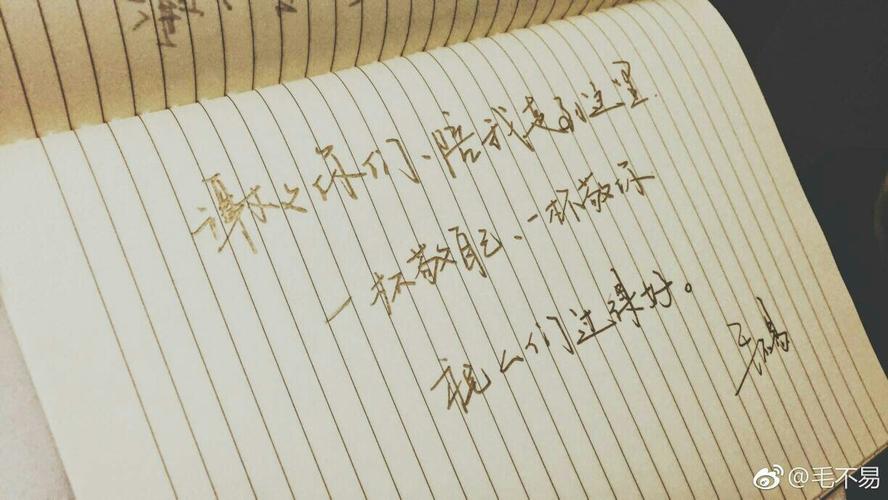 谢谢你们、陪我走到这里.
一杯敬自己、一杯敬你
祝人们过得好。
毛不易
@毛不易